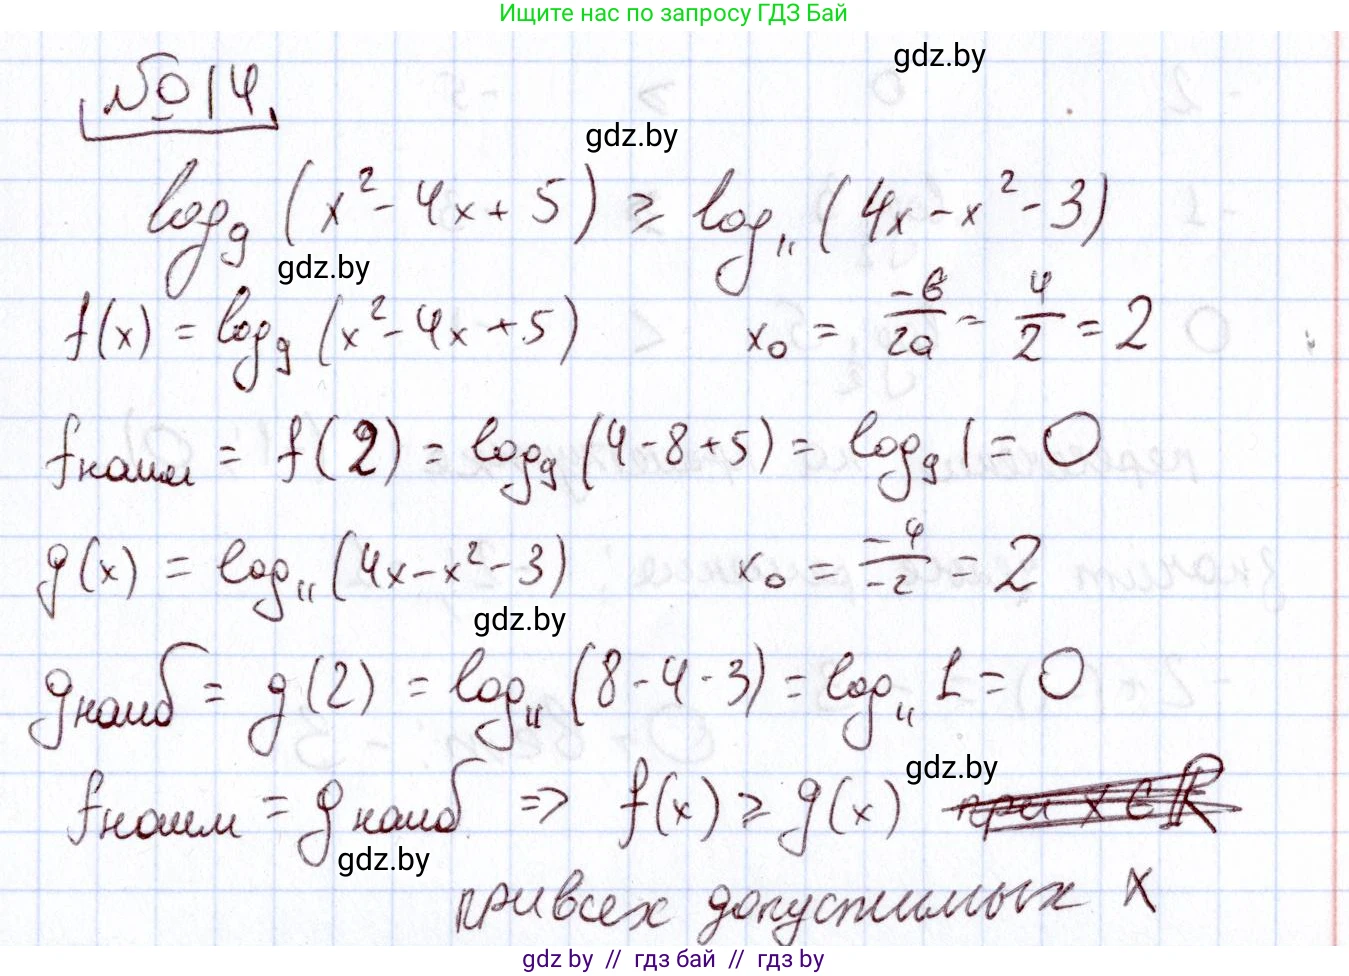 Ищите нас по запросу ГДЗ Бай
gdz.by
№ 14
gdz.by
log₉ (x² - 4x + 5) ≥ log₁₁ (4x - x² - 3)
gdz.by
f(x) = log₉ (x² - 4x + 5) x₀ = -в/2a = 4/2 = 2
fнаим = f(2) = log₉ (4 - 8 + 5) = log₉ 1 = 0
g(x) = log₁₁ (4x - x² - 3) x₀ = -4/-2 = 2
gdz.by
gнаиб = g(2) = log₁₁ (8 - 4 - 3) = log₁₁ 1 = 0
gdz.by
fнаим = gнаиб => f(x) ≥ g(x) при x ∈ R
gdz.by
при всех допустимых x
gdz by // гдз бай // гдз by